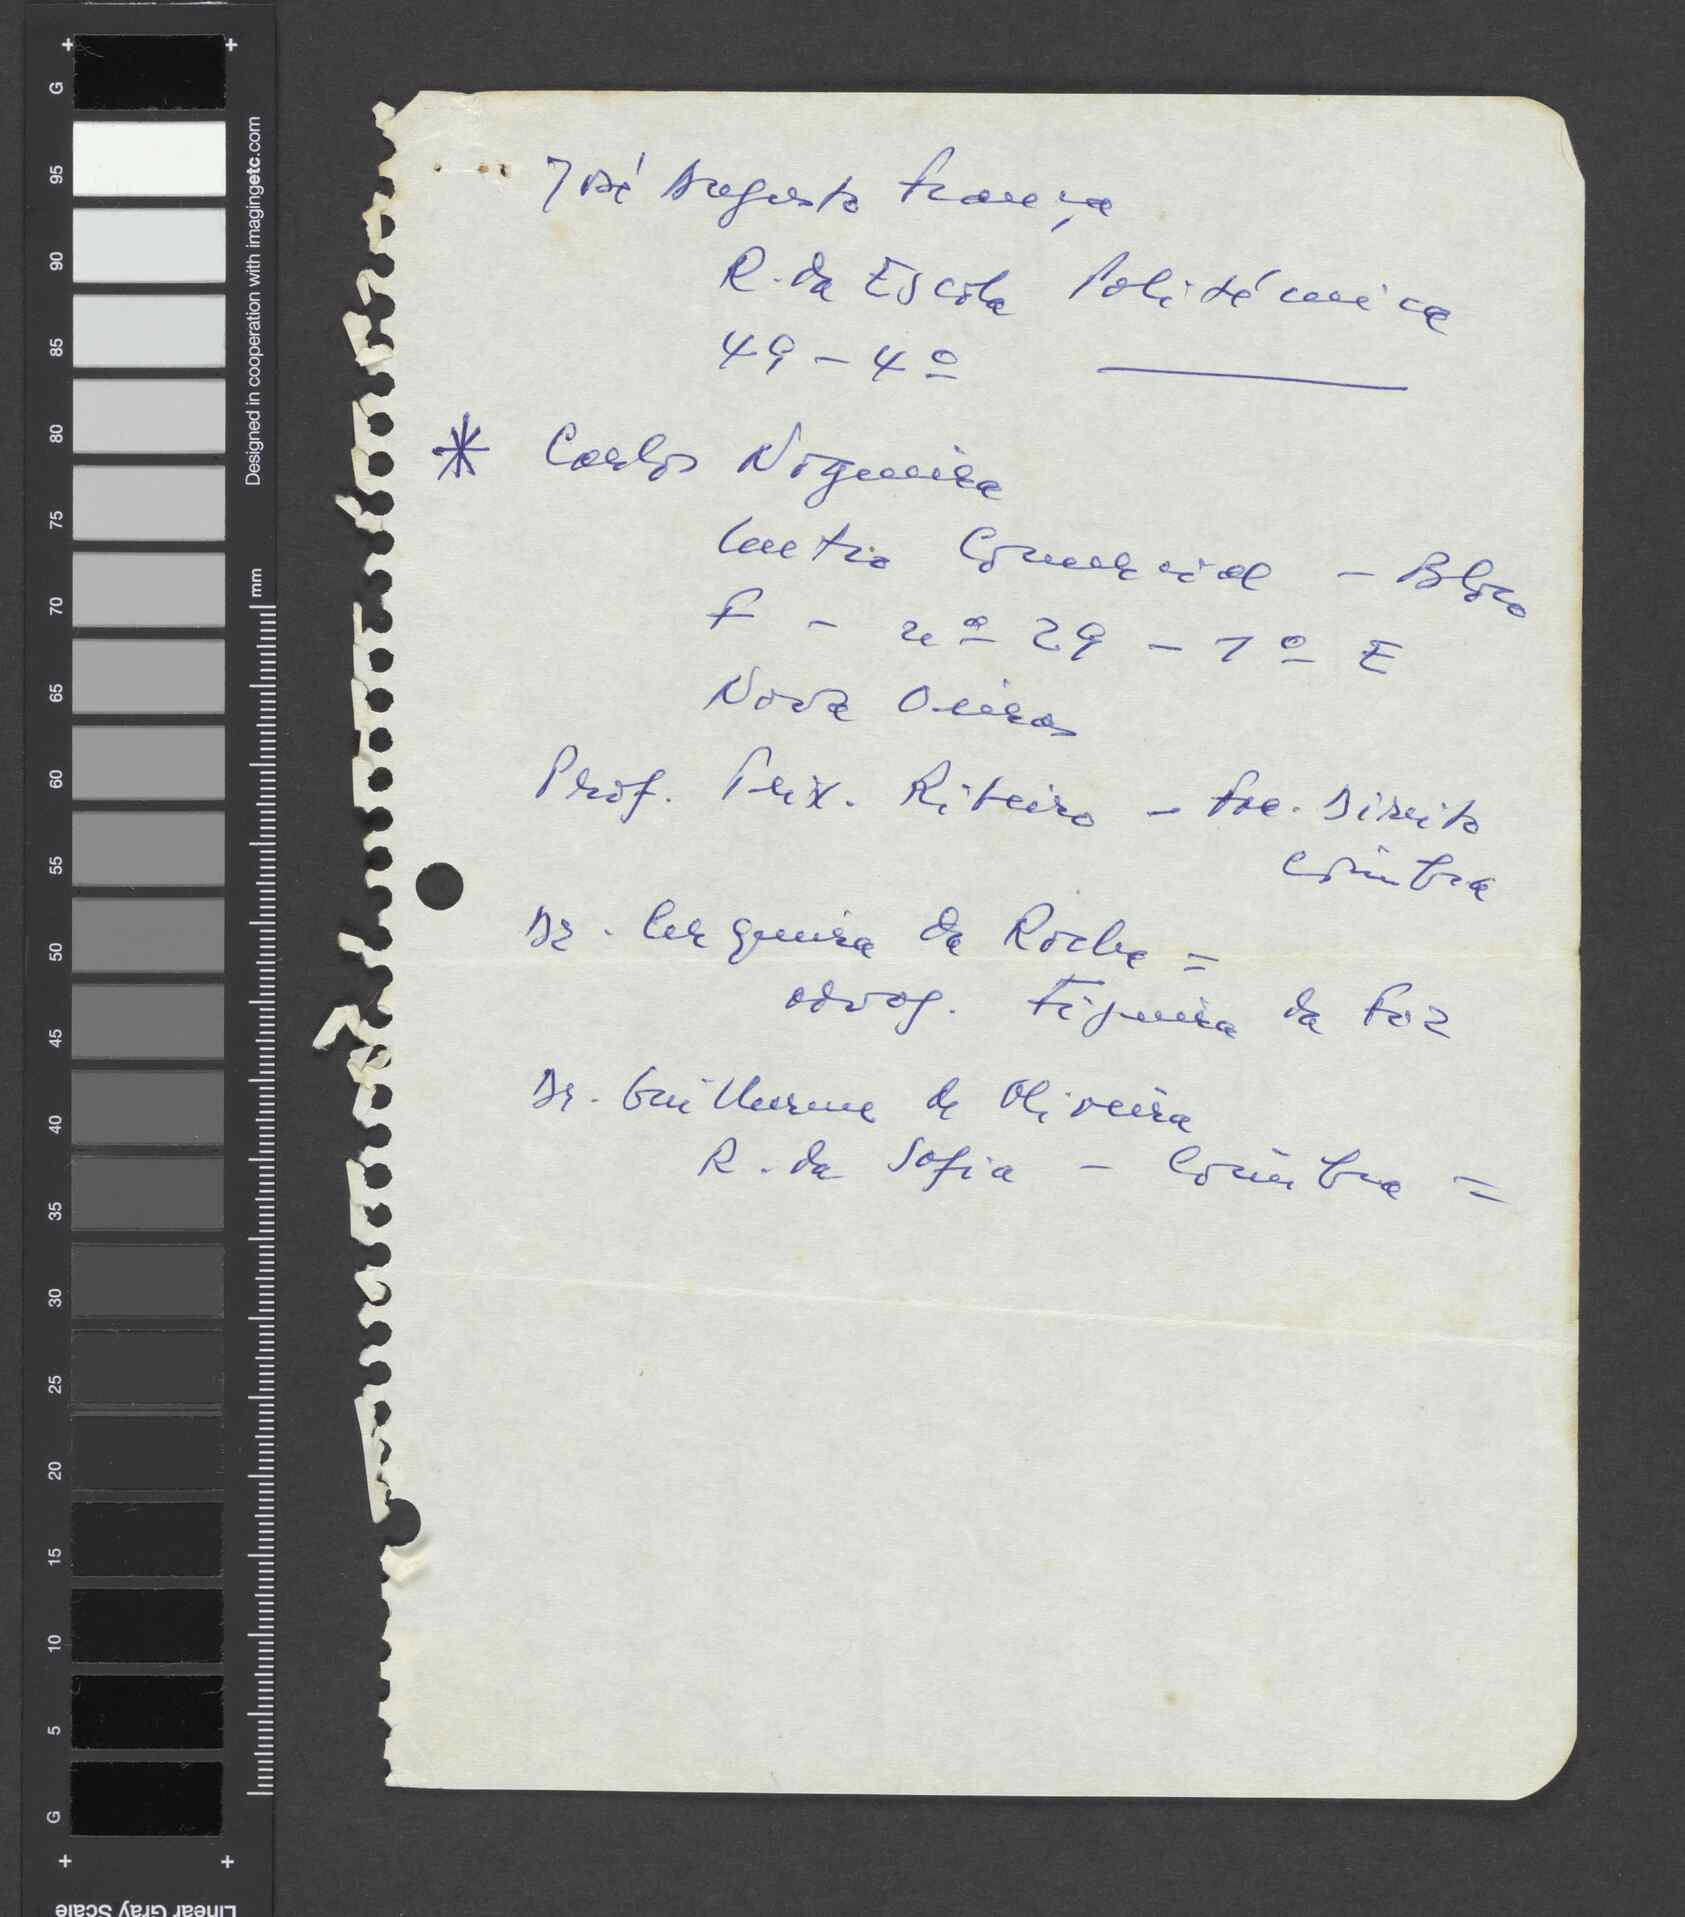 José Augusto França
R. da Escola Politécnica
49 - 4º
* Carlos Nogueira
Centro Comercial - Bloco
F - nº 29 - 1º E
Nova Oeiras
Prof. Teix. Ribeiro - Fac. Direito
Coimbra
Dr. Cerqueira da Rocha =
advog. Figueira da Foz
Dr. Guilherme de Oliveira
R. da Sofia - Coimbra =
G
95
90
85
80
75
70
65
60
55
50
45
40
35
30
25
20
15
10
5
G
Designed in cooperation with imagingetc.com
mm
Linear Gray Scale